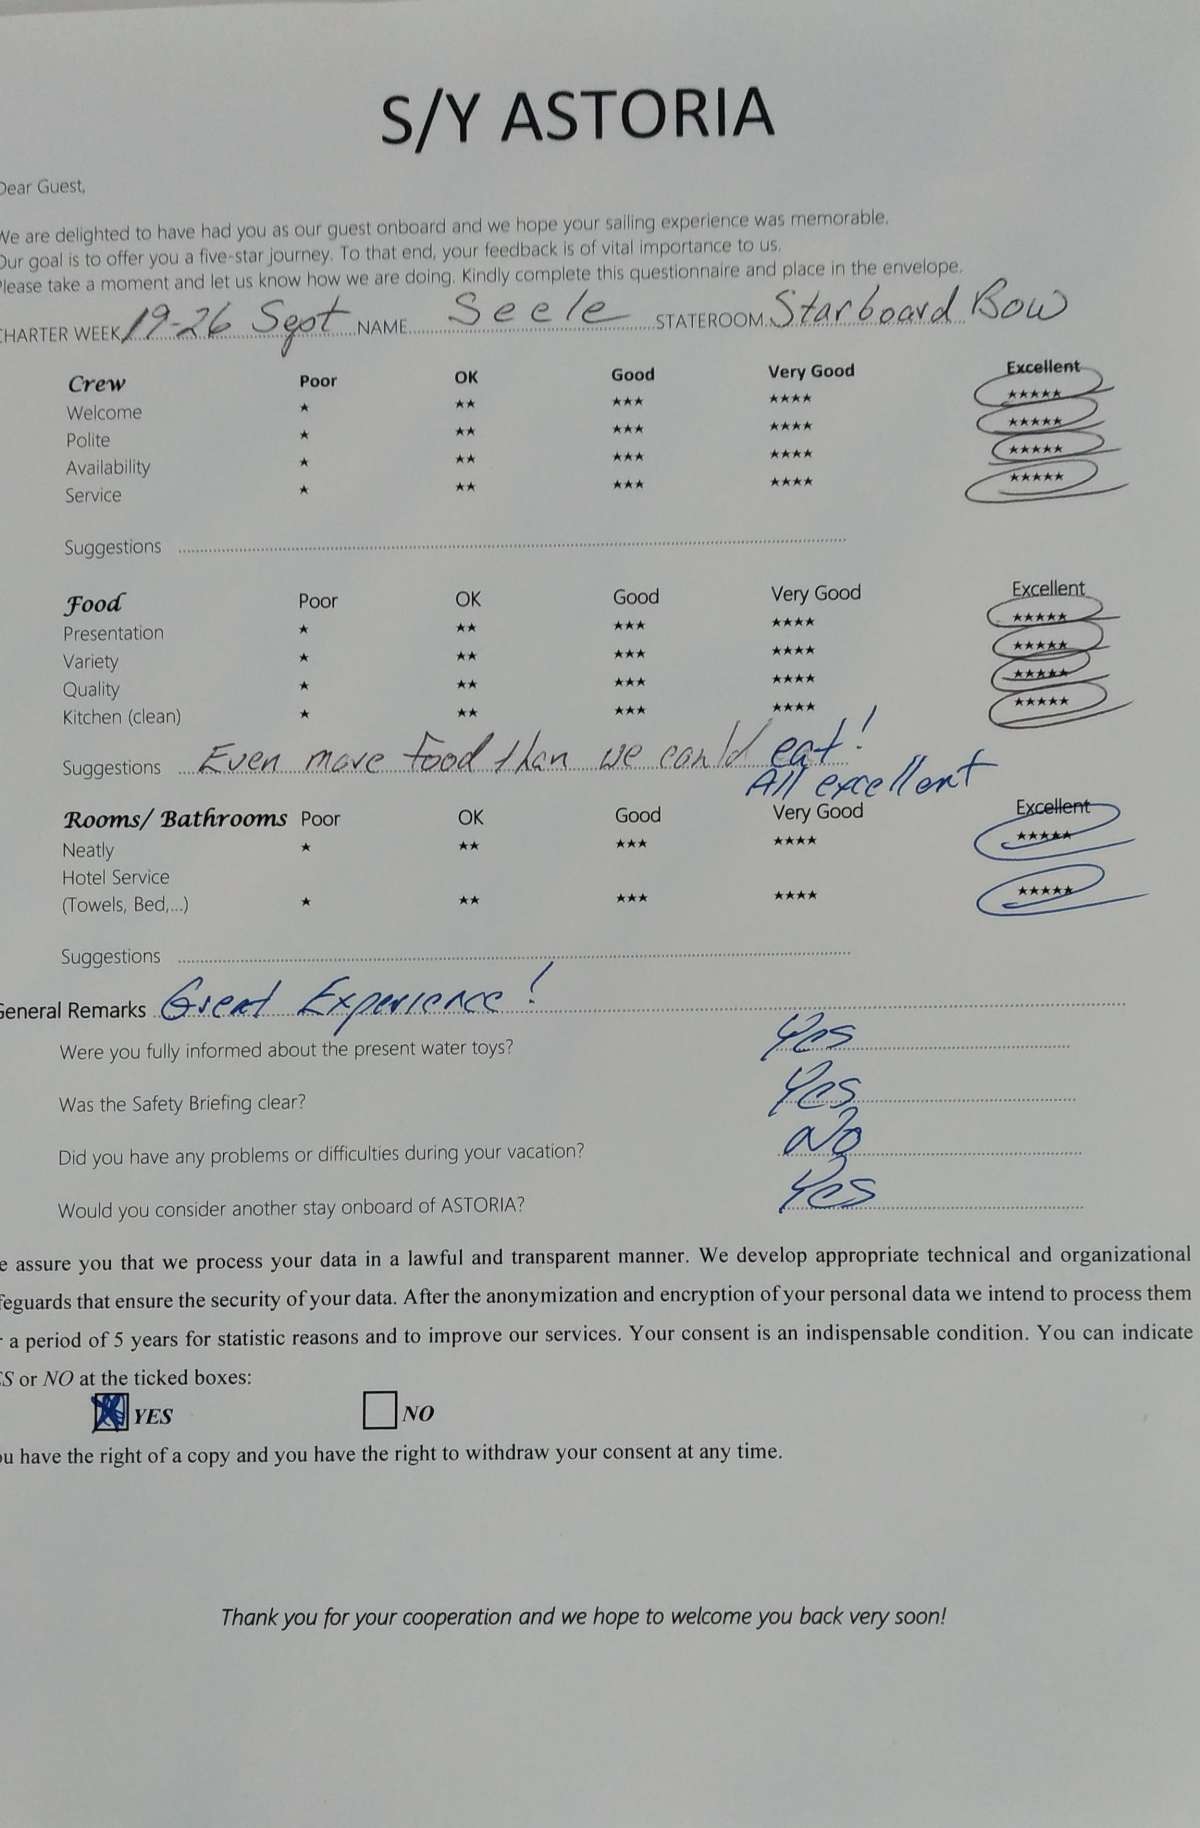 S/Y ASTORIA
Dear Guest,
We are delighted to have had you as our guest onboard and we hope your sailing experience was memorable.
Our goal is to offer you a five-star journey. To that end, your feedback is of vital importance to us.
Please take a moment and let us know how we are doing. Kindly complete this questionnaire and place in the envelope.
CHARTER WEEK 19-26 Sept NAME Seele STATEROOM Starboard Bow
Crew Poor OK Good Very Good Excellent
Welcome ★ ★★ ★★★ ★★★★ ★★★★★
Polite ★ ★★ ★★★ ★★★★ ★★★★★
Availability ★ ★★ ★★★ ★★★★ ★★★★★
Service ★ ★★ ★★★ ★★★★ ★★★★★
Suggestions
Food Poor OK Good Very Good Excellent
Presentation ★ ★★ ★★★ ★★★★ ★★★★★
Variety ★ ★★ ★★★ ★★★★ ★★★★★
Quality ★ ★★ ★★★ ★★★★ ★★★★★
Kitchen (clean) ★ ★★ ★★★ ★★★★ ★★★★★
Suggestions Even more food than we could eat!
All excellent
Rooms/ Bathrooms Poor OK Good Very Good Excellent
Neatly ★ ★★ ★★★ ★★★★ ★★★★★
Hotel Service
(Towels, Bed,...) ★ ★★ ★★★ ★★★★ ★★★★★
Suggestions
General Remarks Great Experience!
Were you fully informed about the present water toys? Yes
Was the Safety Briefing clear? Yes
Did you have any problems or difficulties during your vacation? No
Would you consider another stay onboard of ASTORIA? Yes
e assure you that we process your data in a lawful and transparent manner. We develop appropriate technical and organizational
feguards that ensure the security of your data. After the anonymization and encryption of your personal data we intend to process them
r a period of 5 years for statistic reasons and to improve our services. Your consent is an indispensable condition. You can indicate
ES or NO at the ticked boxes:
YES NO
ou have the right of a copy and you have the right to withdraw your consent at any time.
Thank you for your cooperation and we hope to welcome you back very soon!